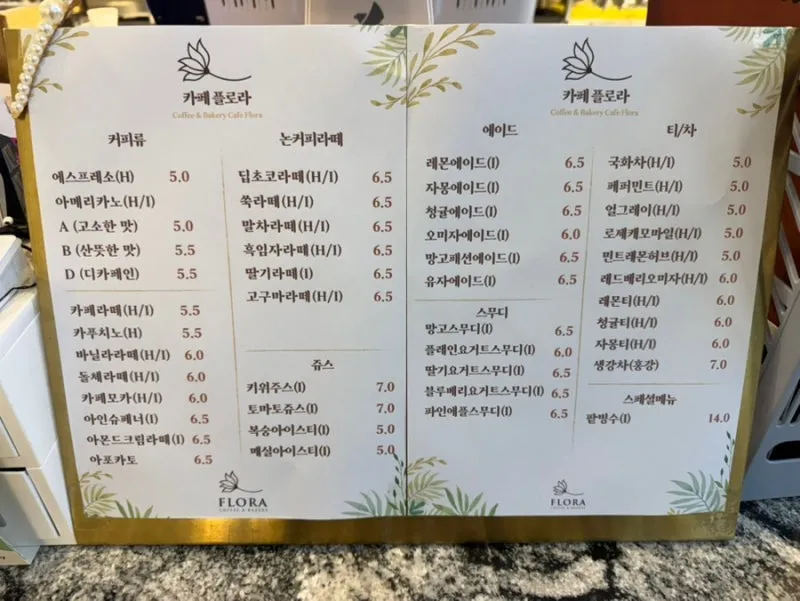 카페 플로라
Coffee & Bakery Cafe Flora
커피류
에스프레소(H) 5.0
아메리카노(H/I)
A (고소한 맛) 5.0
B (산뜻한 맛) 5.5
D (디카페인) 5.5
카페라떼(H/I) 5.5
카푸치노(H) 5.5
바닐라라떼(H/I) 6.0
돌체라떼(H/I) 6.0
카페모카(H/I) 6.0
아인슈페너(I) 6.5
아몬드크림라떼(I) 6.5
아포카토 6.5
논커피라떼
딥초코라떼(H/I) 6.5
쑥라떼(H/I) 6.5
말차라떼(H/I) 6.5
흑임자라떼(H/I) 6.5
딸기라떼(I) 6.5
고구마라떼(H/I) 6.5
쥬스
키위주스(I) 7.0
토마토쥬스(I) 7.0
복숭아이스티(I) 5.0
매실아이스티(I) 5.0
FLORA
COFFEE & BAKERY
카페 플로라
Coffee & Bakery Cafe Flora
에이드
레몬에이드(I) 6.5
자몽에이드(I) 6.5
청귤에이드(I) 6.5
오미자에이드(I) 6.0
망고패션에이드(I) 6.5
유자에이드(I) 6.5
스무디
망고스무디(I) 6.5
플레인요거트스무디(I) 6.5
딸기요거트스무디(I) 6.5
블루베리요거트스무디(I) 6.5
파인애플스무디(I) 6.5
티/차
국화차(H/I) 5.0
페퍼민트(H/I) 5.0
얼그레이(H/I) 5.0
로제캐모마일(H/I) 5.0
민트레몬허브(H/I) 5.0
레드베리오미자(H/I) 6.0
레몬티(H/I) 6.0
청귤티(H/I) 6.0
자몽티(H/I) 6.0
생강차(홍강) 7.0
스페셜메뉴
팥빙수(I) 14.0
FLORA
COFFEE & BAKERY